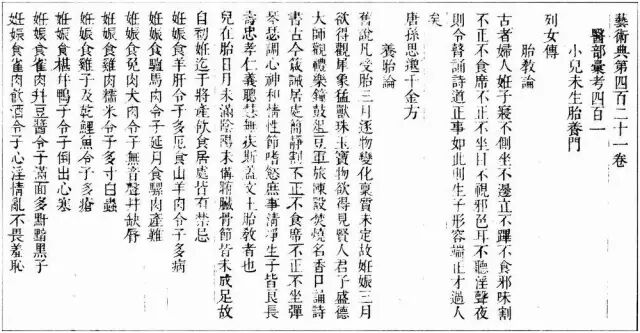 藝術典第四百二十一卷
醫部彙考四百一
小兒未生胎養門
列女傳
胎教論
古者婦人妊子寢不側坐不邊立不蹕不食邪味割
不正不食席不正不坐目不視邪色耳不聽淫聲夜
則令瞽誦詩道正事如此則生子形容端正才過人
矣
唐孫思邈千金方
養胎論
舊說凡受胎三月逐物變化稟質未定故妊娠三月
欲得觀犀象猛獸珠玉寶物欲得見賢人君子盛德
大師觀禮樂鐘鼓俎豆軍旅陳設焚燒名香口誦詩
書古今箴誡居處簡靜割不正不食席不正不坐彈
琴瑟調心神和情性節嗜慾庶事清淨生子皆良長
壽忠孝仁義聰慧無疾斯蓋文王胎教者也
兒在胎日月未滿陰陽未備臟腑骨節皆未成足故
自初妊迄于將產飲食居處皆有禁忌
妊娠食羊肝令子多厄食山羊肉令子多病
妊娠食驢馬肉令子延月食騾肉產難
妊娠食兔肉犬肉令子無音聲并缺唇
妊娠食雞肉糯米令子多寸白蟲
妊娠食雞子及乾鯉魚令子多瘡
妊娠食椹并鴨子令子倒出心寒
妊娠食雀肉并豆醬令子滿面多䵟黯黑子
妊娠食雀肉飲酒令子心淫情亂不畏羞恥